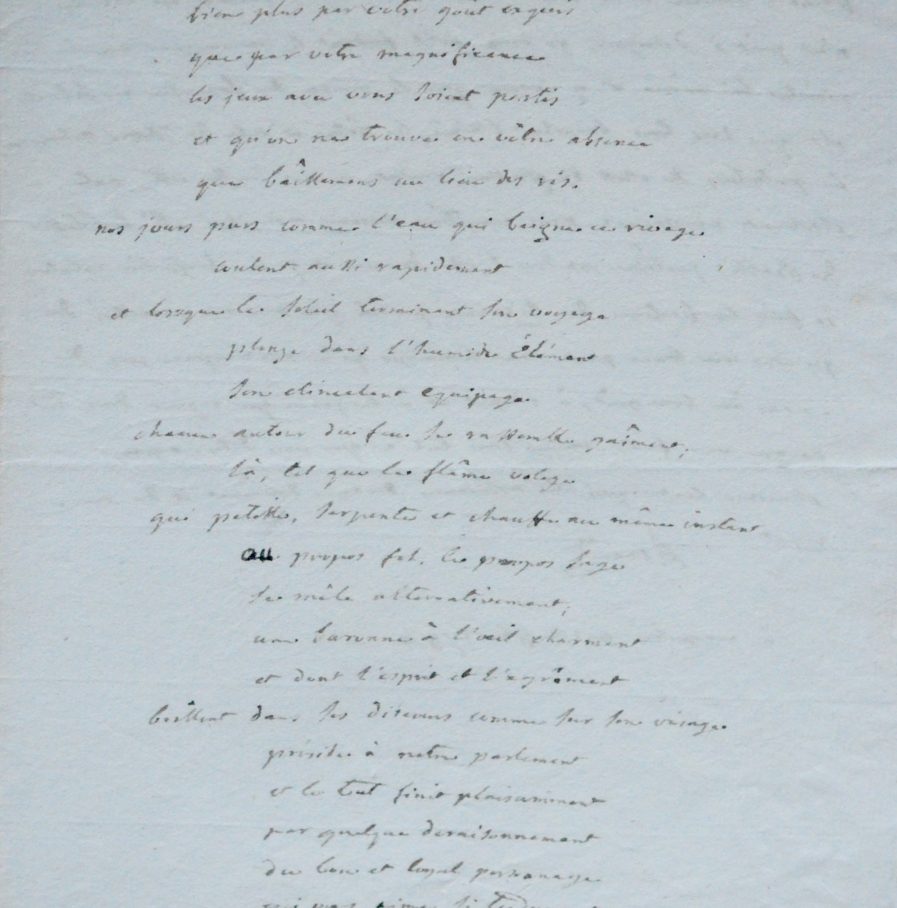 bien plus par votre goût exquis
que par votre magnificence
les jeux avec vous soient partis
et qu'on ne trouve en vôtre absence
que bâillemens au lieu des ris.
nos jours purs comme l'eau qui baigne ce rivage
coulent aussi rapidement
et lorsque le soleil terminant son voyage
plonge dans l'humide élément
son etincelant equipage
chacun autour du feu se rassemble gaîment;
là, tel que la flâme volage
qui petille, serpente et chauffe au même instant
au propos fol, le propos sage
se mêle alternativement;
une baronne à l'oeil charmant
et dont l'esprit et l'agrêment
brillent dans ses discours comme sur son visage
préside à notre parlement
et le tout finit plaisamment
par quelque deraisonnement
du bon et loyal personnage
qui vous aime si